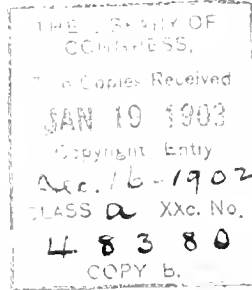 THE LIBRARY OF
CONGRESS,
Two Copies Received
JAN 19 1903
Copyright Entry
Dec. 16-1902
CLASS a XXc. No.
48380
COPY B.